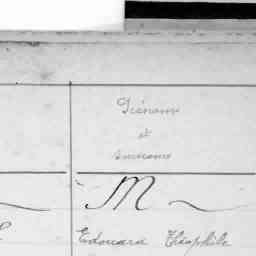 Prénoms
et
surnoms
M
Edouard Théophile